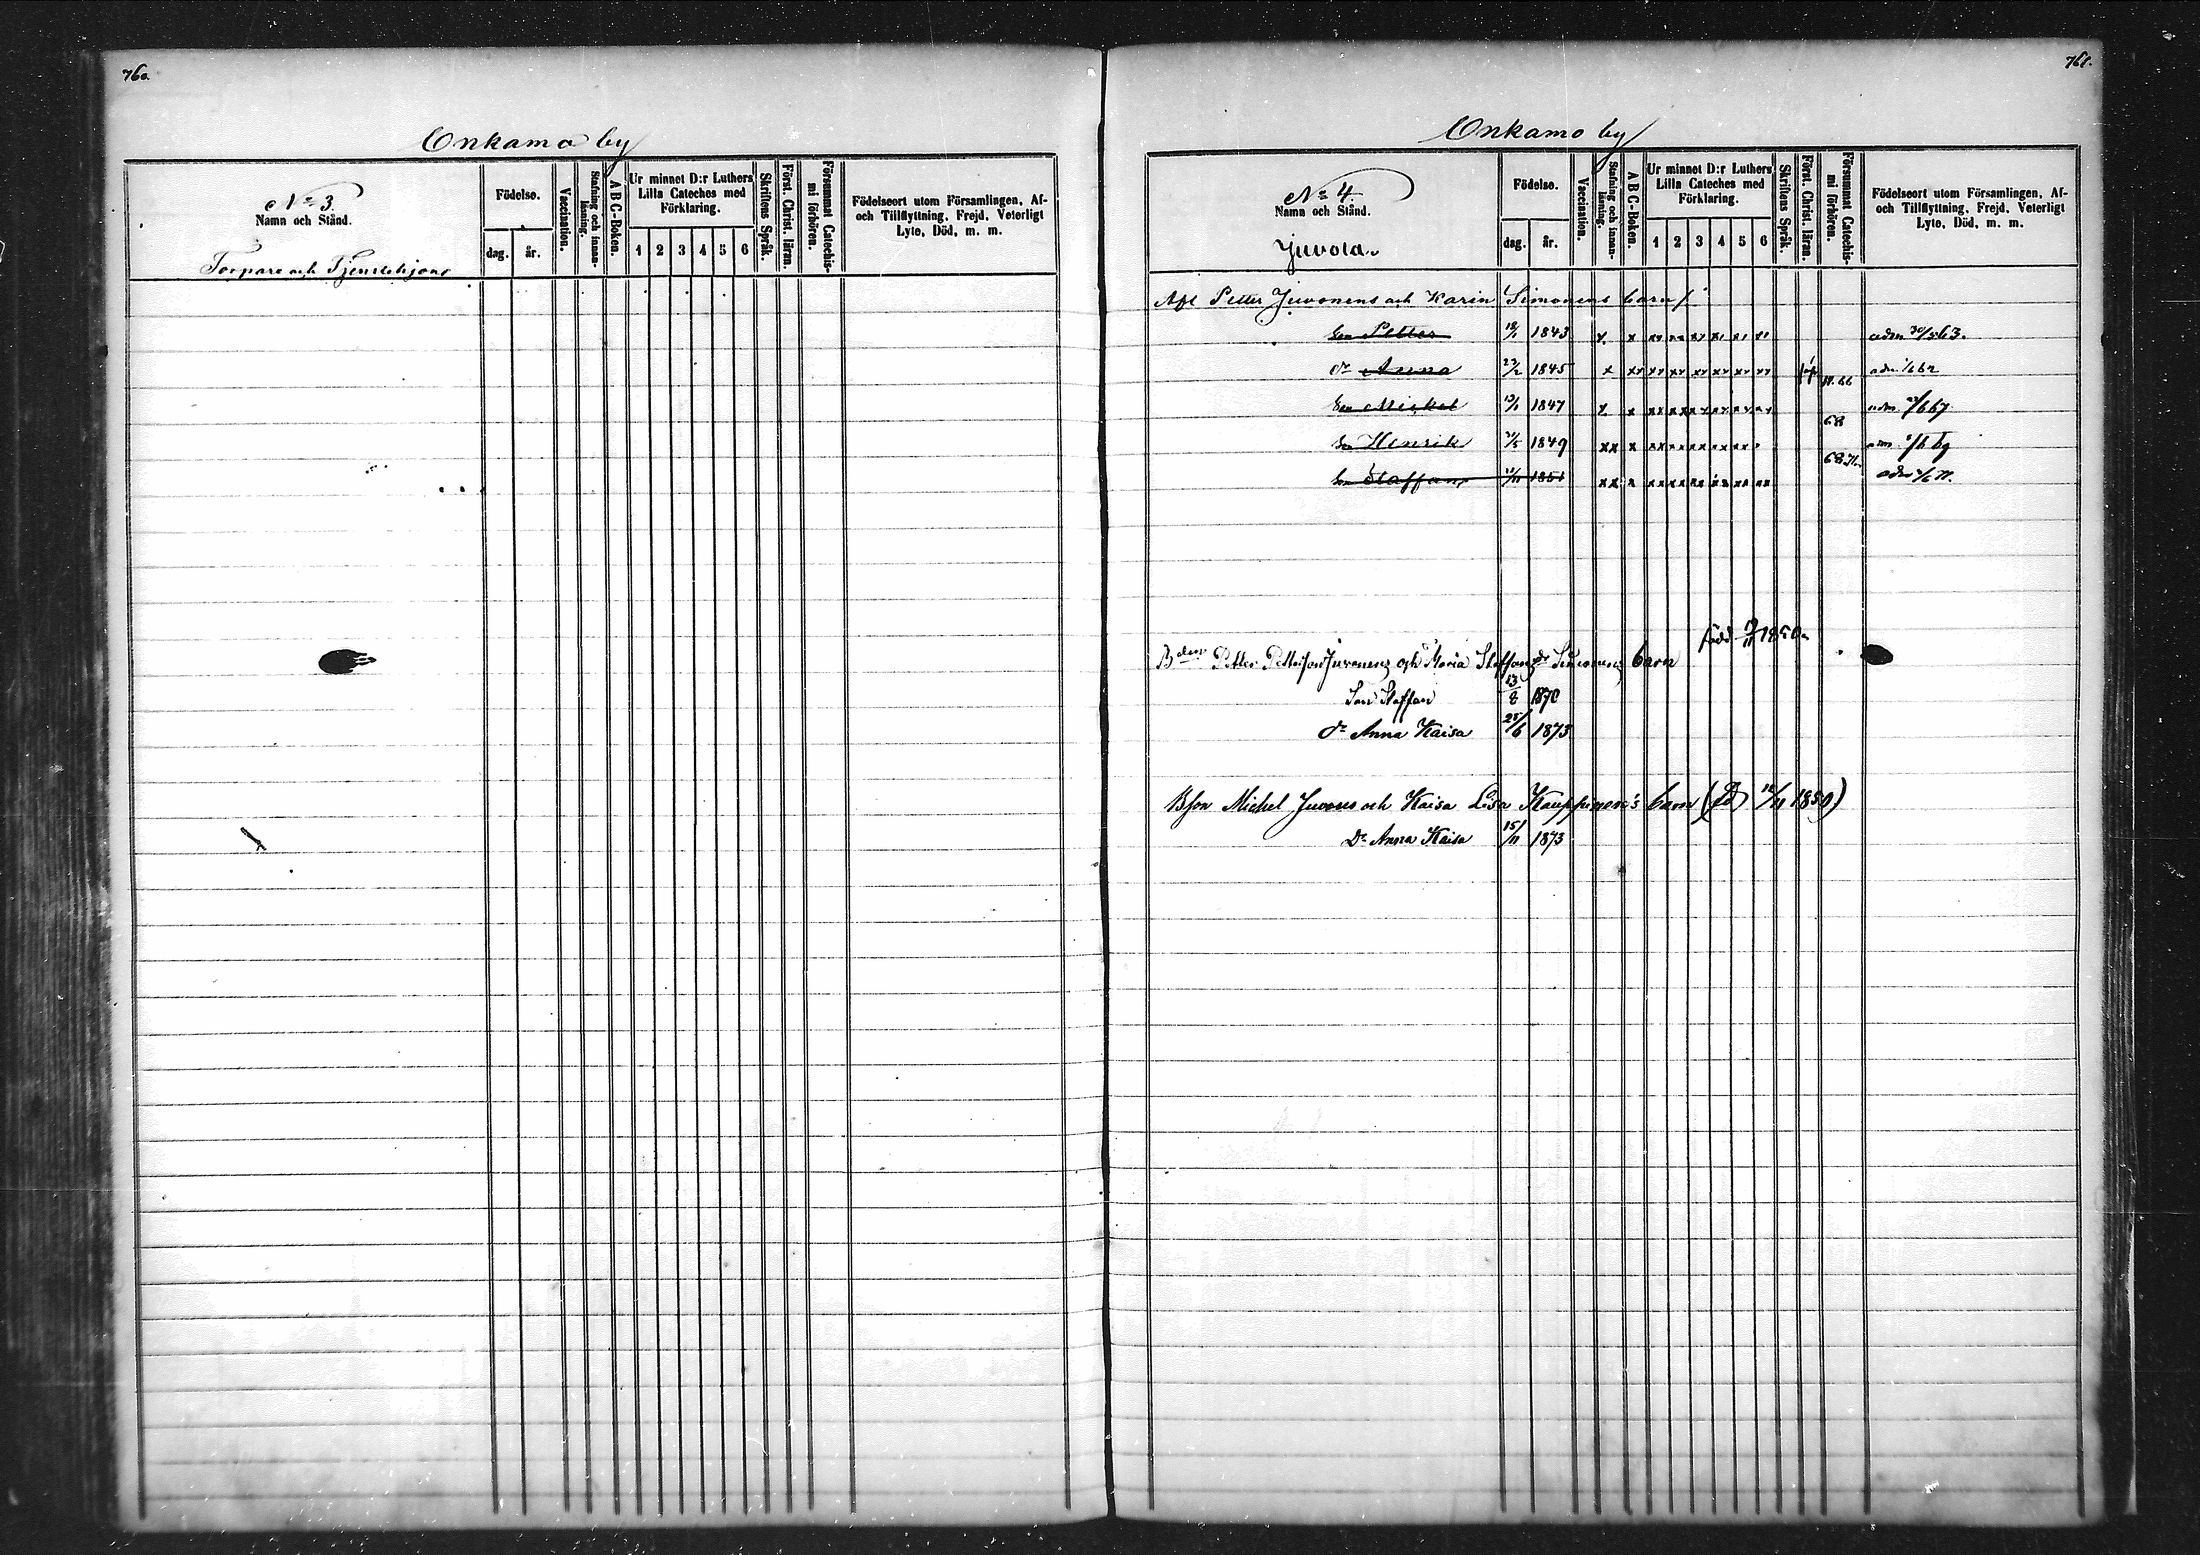 760.
Onkamo by
No 3.
Namn och Stånd.
Torpare och Tjenstehjon
Födelse.
dag. år.
Vaccination.
Stafning och innanläsning.
A B C-Boken.
Ur minnet D:r Luthers Lilla Cateches med Förklaring.
1 2 3 4 5 6
Skriftens Språk.
Först. Christ. läran.
Försummat Catechismi förhören.
Födelseort utom Församlingen, Af- och Tillflyttning, Frejd, Veterligt Lyte, Död, m. m.
761.
Onkamo by
No 4.
Namn och Stånd.
Juvola
Födelse.
dag. år.
Vaccination.
Stafning och innanläsning.
A B C-Boken.
Ur minnet D:r Luthers Lilla Cateches med Förklaring.
1 2 3 4 5 6
Skriftens Språk.
Först. Christ. läran.
Försummat Catechismi förhören.
Födelseort utom Församlingen, Af- och Tillflyttning, Frejd, Veterligt Lyte, Död, m. m.
Petter Juvonens och Karin Simonens barn
Son Petter 1843 x x xx xx xx xx xx xx adm
dr Anna 23/2 1845 x xx xx xx xx xx xx xx adm
Son Michel 1847 x x xx xx xx xx xx xx 68 adm
Son Henrik 1849 xx x xx xx xx xx xx x
Son Staffan 1851 xx x xx xx xx xx xx xx adm
född 1850
Petter Juvonens och Maria Staffansdr Simonens barn
Son Staffan 13/8 1870
dr Anna Kaisa 25/6 1873
Michel Juvons och Kaisa Lisa Kauppinens barn (fd 12/11 1850)
Dr Anna Kaisa 15/11 1873